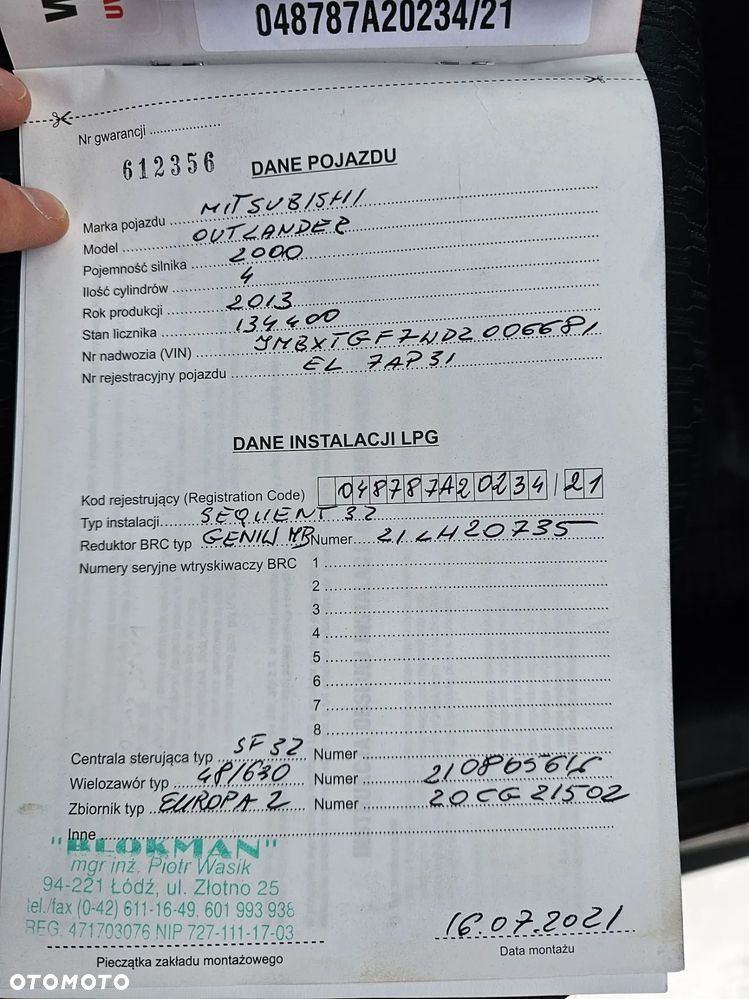 048787A20234/21
Nr gwarancji ....................
612356
DANE POJAZDU
Marka pojazdu MITSUBISHI
Model OUTLANDER
Pojemność silnika 2000
Ilość cylindrów 4
Rok produkcji 2013
Stan licznika 134400
Nr nadwozia (VIN) JMBXTGF7WDZ006681
Nr rejestracyjny pojazdu EL 7AP31
DANE INSTALACJI LPG
Kod rejestrujący (Registration Code) 048787A20234/21
Typ instalacji SEQUENT 32
Reduktor BRC typ GENIUS MB Numer 21LH20735
Numery seryjne wtryskiwaczy BRC 1
2
3
4
5
6
7
8
Centrala sterująca typ SF32 Numer
Wielozawór typ 48/630 Numer
Zbiornik typ EUROPA 2 Numer 20CG21502
Inne
"BLOKMAN"
mgr inż. Piotr Wasik
94-221 Łódź, ul. Złotno 25
tel./fax (0-42) 611-16-49, 601 993 938
REG. 471703076 NIP 727-111-17-03
16.07.2021
Pieczątka zakładu montażowego
Data montażu
OTOMOTO